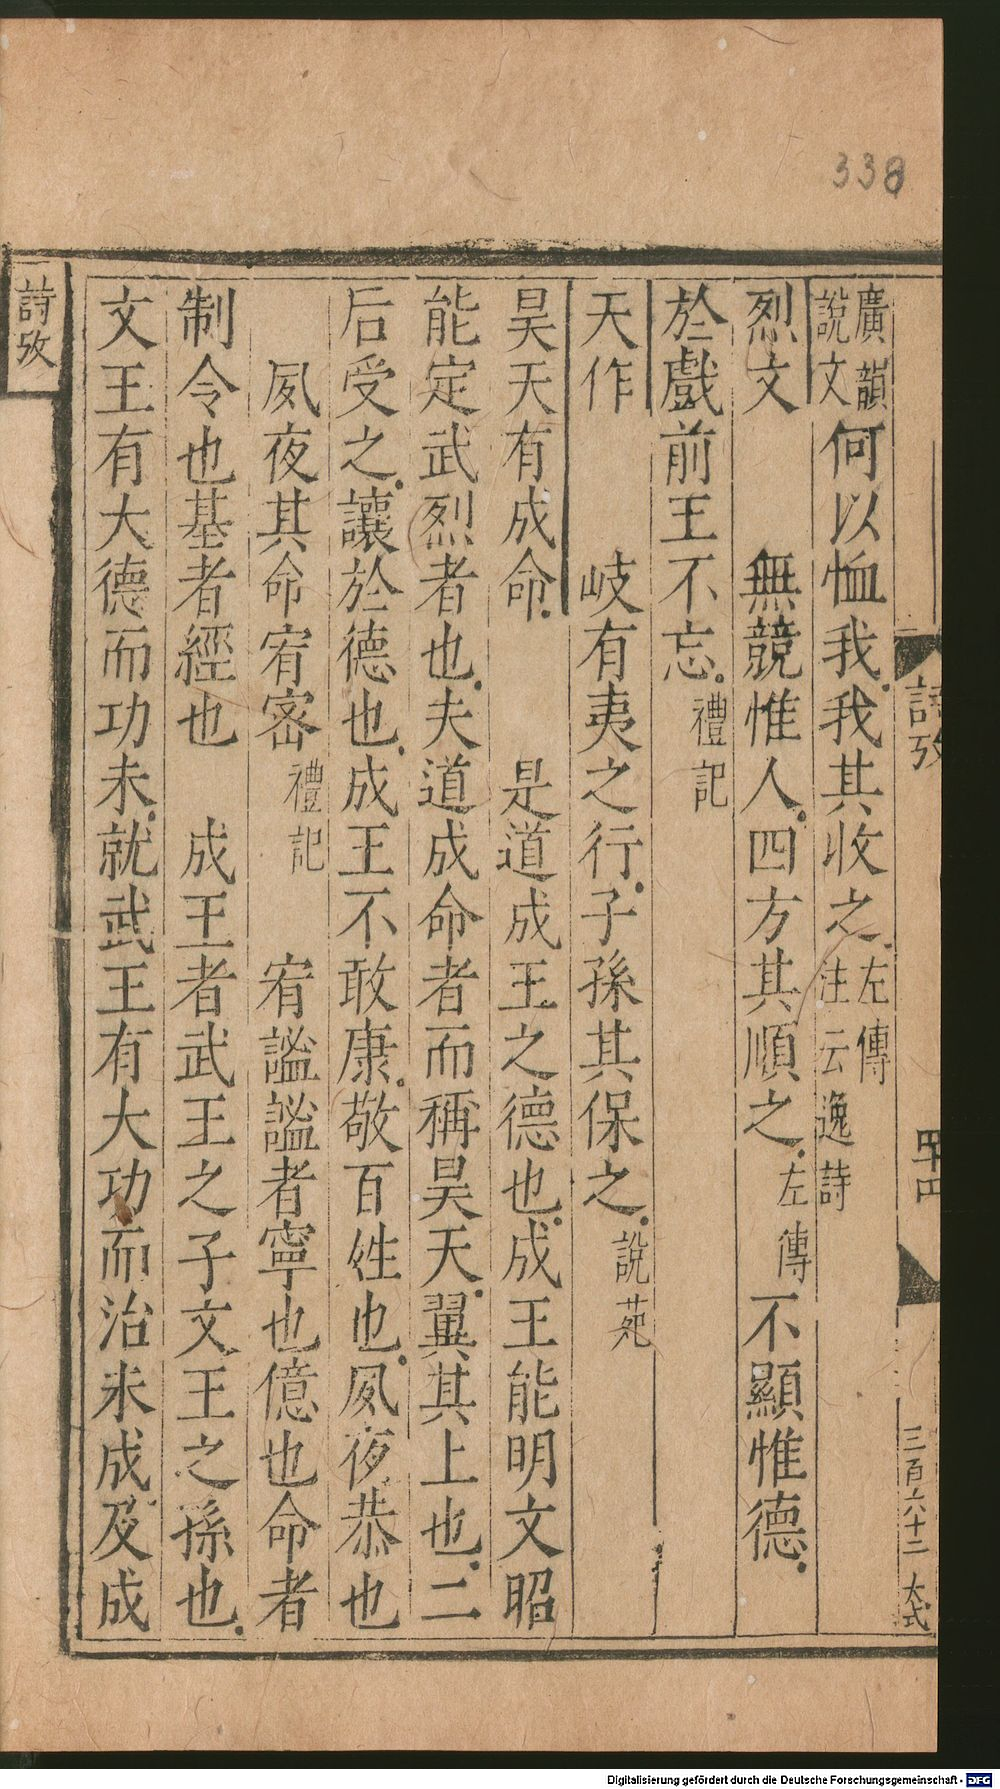 338
詩攷
四十四
三百六十二
大弍
廣韻說文何以恤我我其收之左傳注云逸詩
烈文　無競惟人四方其順之左傳不顯惟德
於戲前王不忘禮記
天作　岐有夷之行子孫其保之說苑
昊天有成命　是道成王之德也成王能明文昭
能定武烈者也夫道成命者而稱昊天翼其上也二
后受之讓於德也成王不敢康敬百姓也夙夜恭也
夙夜其命宥密禮記　宥謐謐者寧也億也命者
制令也基者經也　成王者武王之子文王之孫也
文王有大德而功未就武王有大功而治未成及成
詩攷
Digitalisierung gefördert durch die Deutsche Forschungsgemeinschaft - DFG